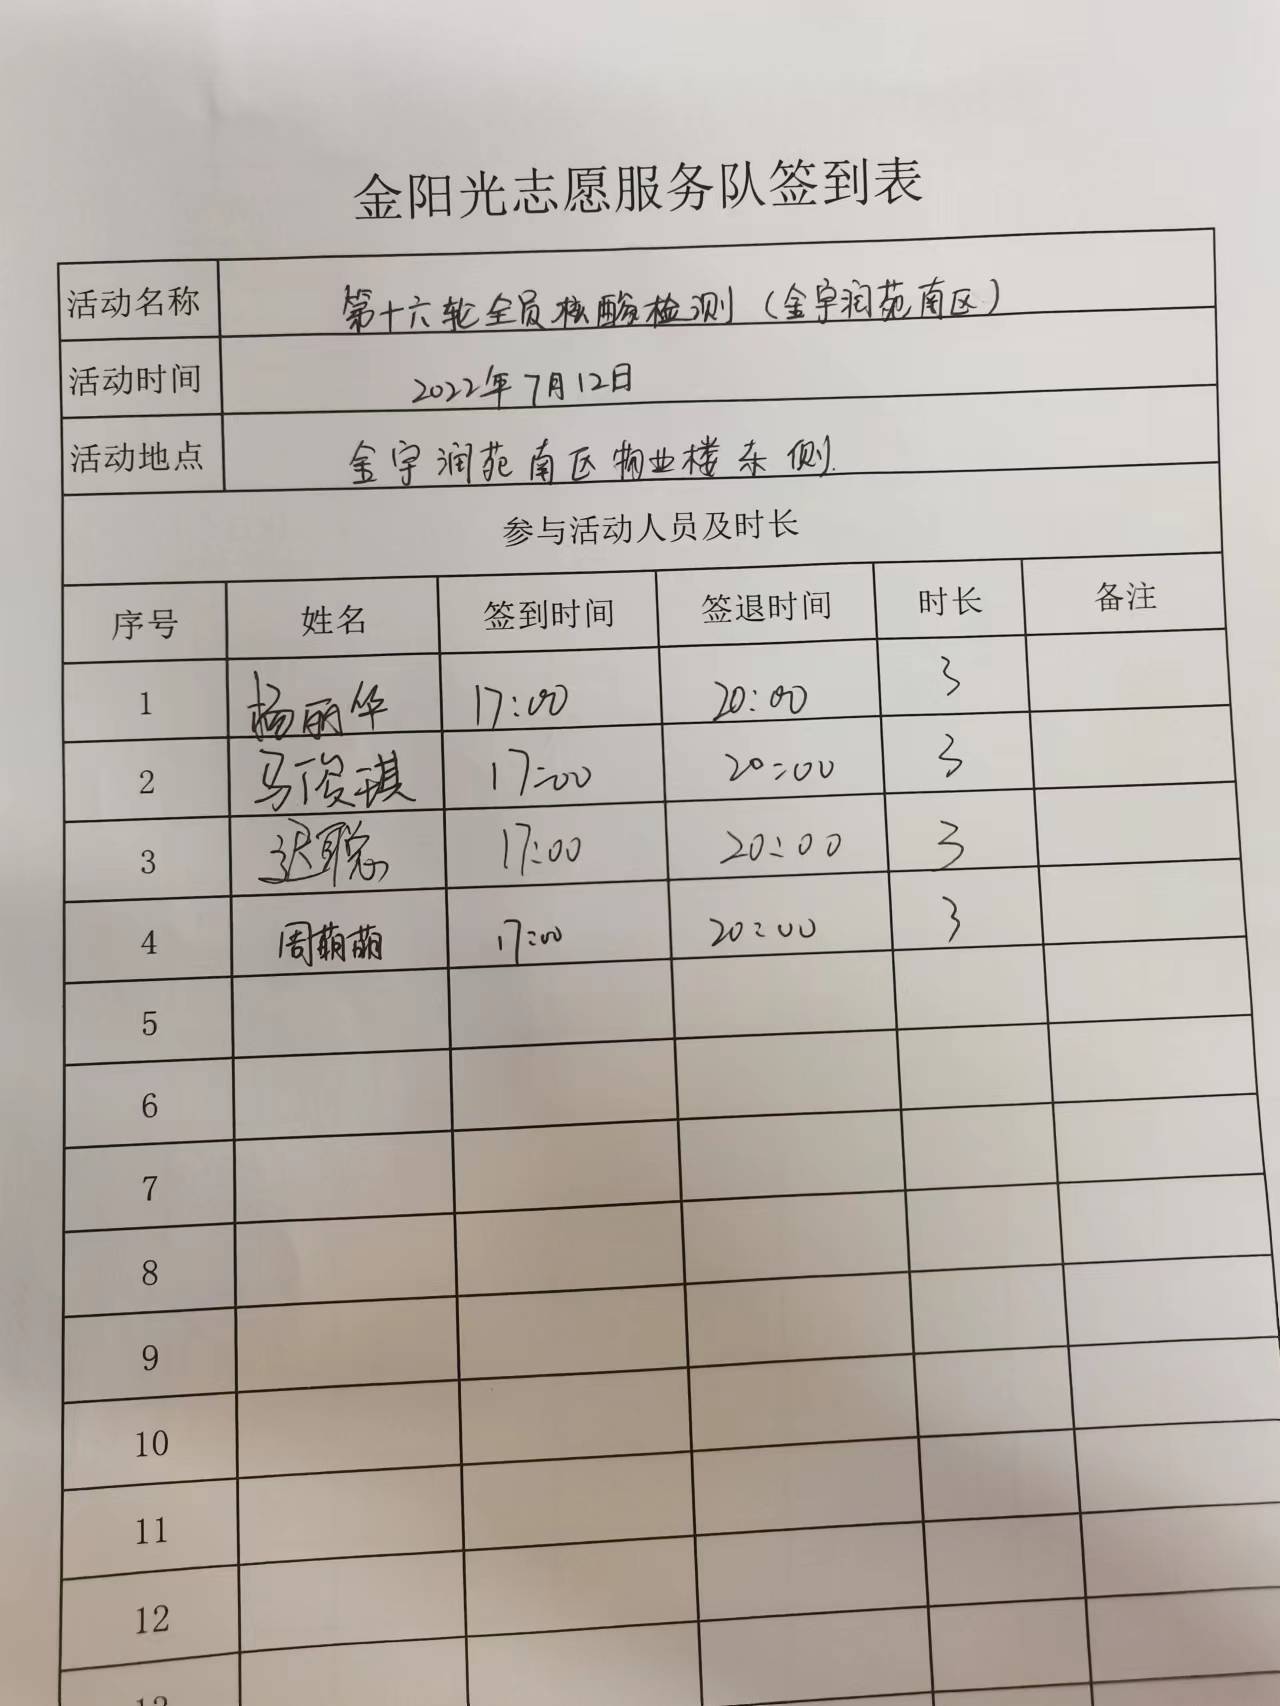 金阳光志愿服务队签到表
活动名称 第十六轮全员核酸检测（金宇润苑南区）
活动时间 2022年7月12日
活动地点 金宇润苑南区物业楼东侧
参与活动人员及时长
序号 姓名 签到时间 签退时间 时长 备注
1 杨丽华 17:00 20:00 3
2 马俊琪 17:00 20:00 3
3 迟聪 17:00 20:00 3
4 周萌萌 17:00 20:00 3
5
6
7
8
9
10
11
12
13